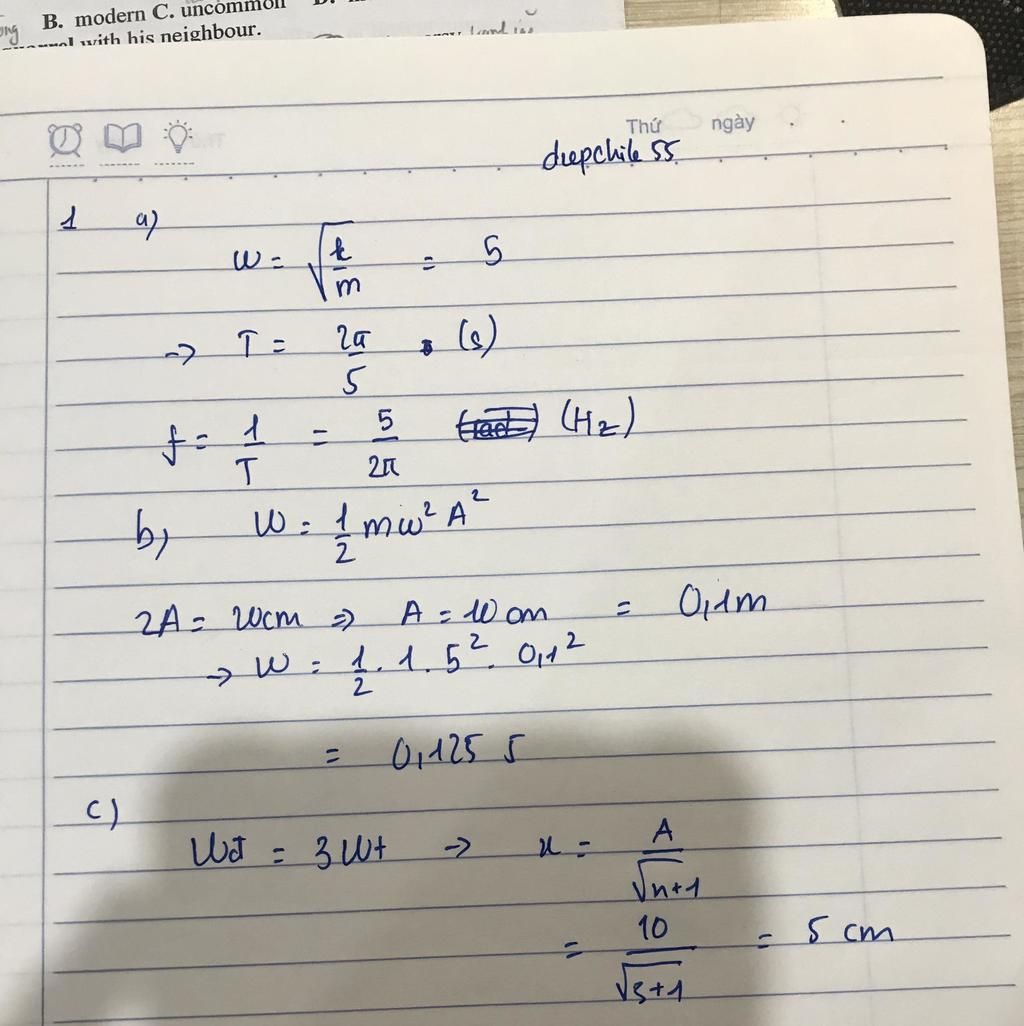 B. modern C. uncommon
with his neighbour.
Thứ ngày
deepchile 55
1 a)
ω = √(k/m) = 5
→ T = 2π/5 . (s)
f = 1/T = 5/2π (Hz)
b) W = 1/2 mω² A²
2A = 20cm => A = 10 cm = 0,1m
→ W = 1/2 . 1 . 5² . 0,1²
= 0,125 J
c)
Wđ = 3Wt → x = A/√n+1
= 10/√3+1 = 5 cm